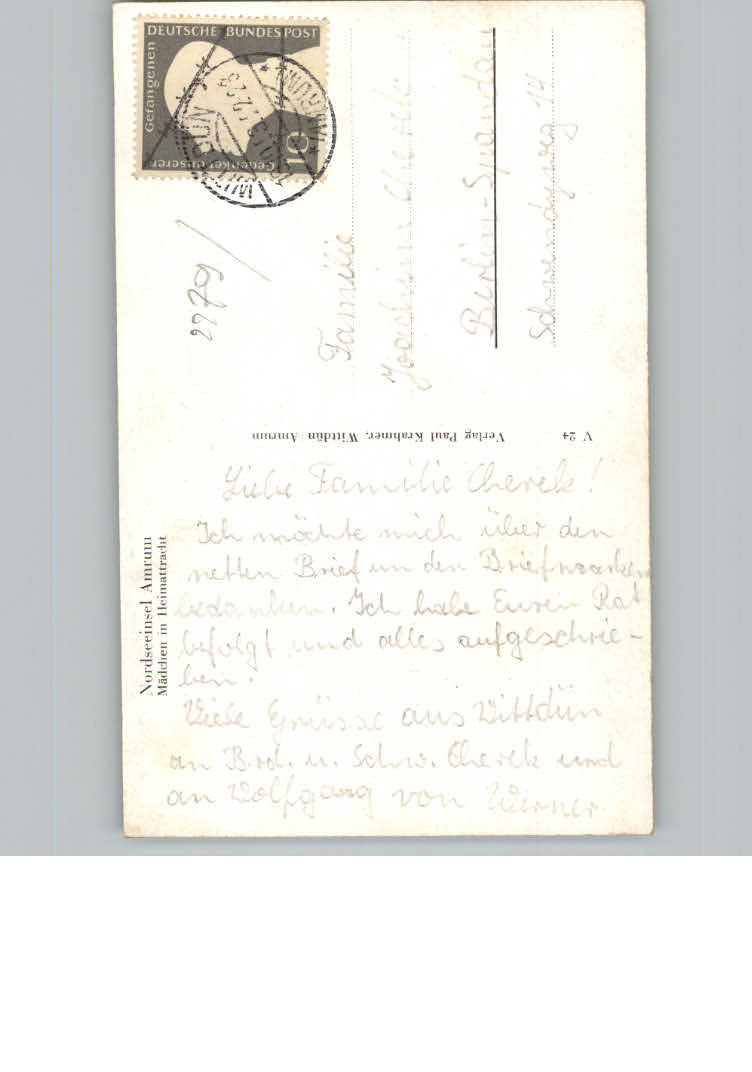 DEUTSCHE BUNDESPOST
Gedenket unserer
Gefangenen
10
2779
Familie
Joachim Cherek
Berlin-Spandau
Schwendyweg 14
Verlag Paul Krahmer, Wittdün Amrum
V 24
Nordseeinsel Amrum
Mädchen in Heimattracht
Liebe Familie Cherek!
Ich möchte mich über den
netten Brief um den Briefmarken
bedanken. Ich habe Euren Rat
befolgt und alles aufgeschrie-
ben.
Viele Grüsse aus Wittdün
an Brd. u. Schw. Cherek und
an Wolfgang von Werner